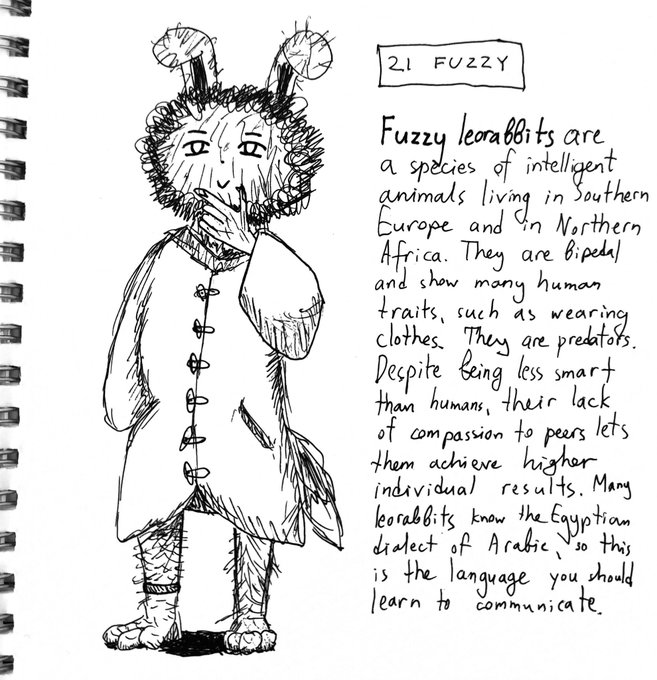 21 FUZZY
Fuzzy leorabbits are
a species of intelligent
animals living in Southern
Europe and in Northern
Africa. They are bipedal
and show many human
traits, such as wearing
clothes. They are predators.
Despite being less smart
than humans, their lack
of compassion to peers lets
them achieve higher
individual results. Many
leorabbits know the Egyptian
dialect of Arabic, so this
is the language you should
learn to communicate.